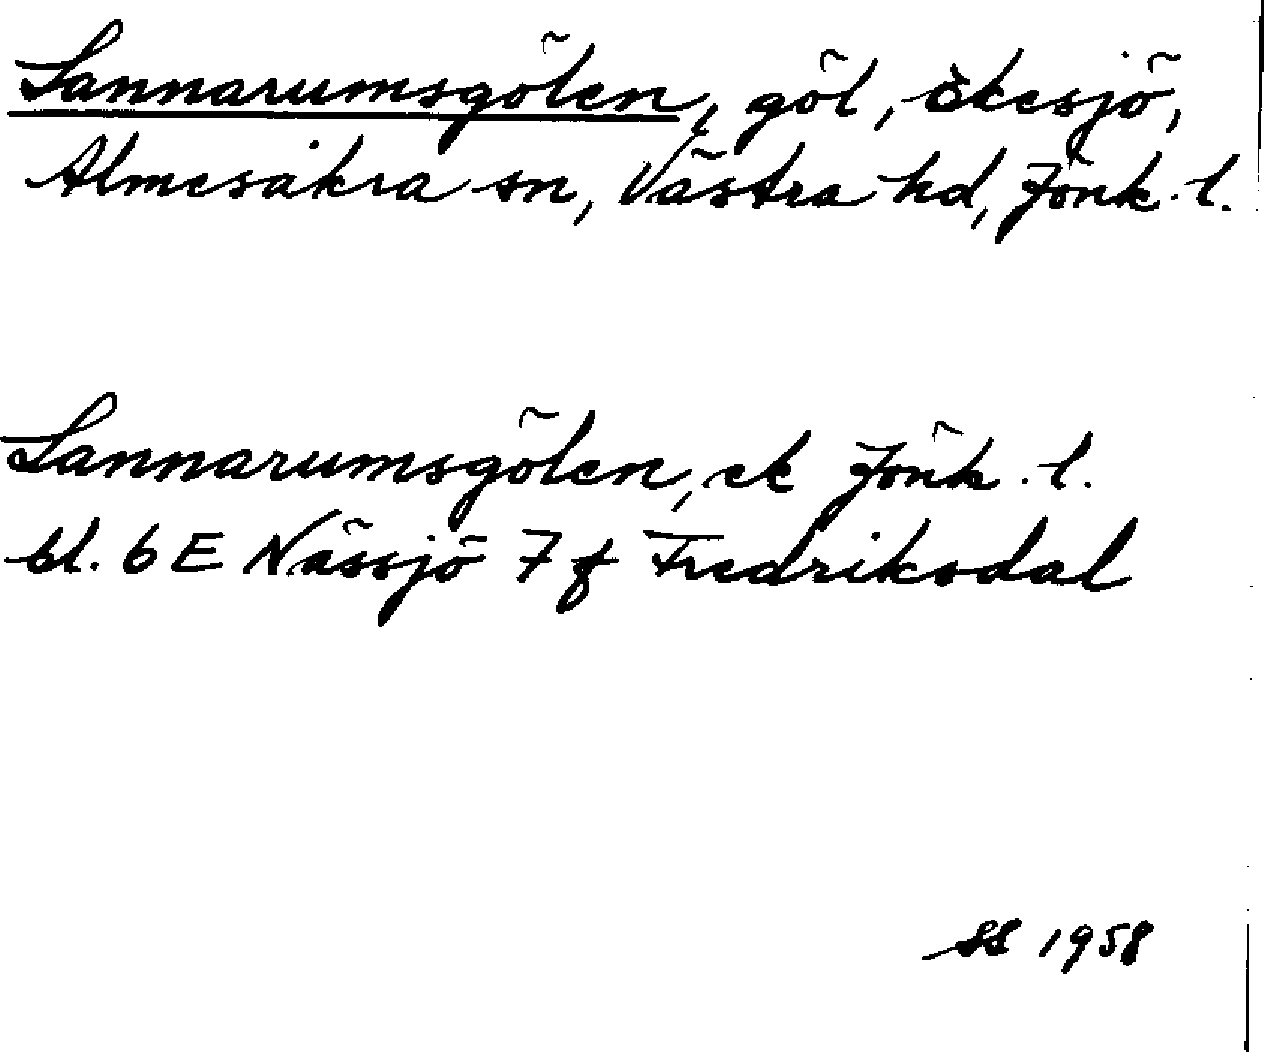 Sannarumsgölen, göl, Ekesjö,
Almesåkra sn, Västra hd, Jönk. l.
Sannarumsgölen, ek Jönk. l.
bl. 6 E Nässjö 7 f Fredriksdal
SS 1958